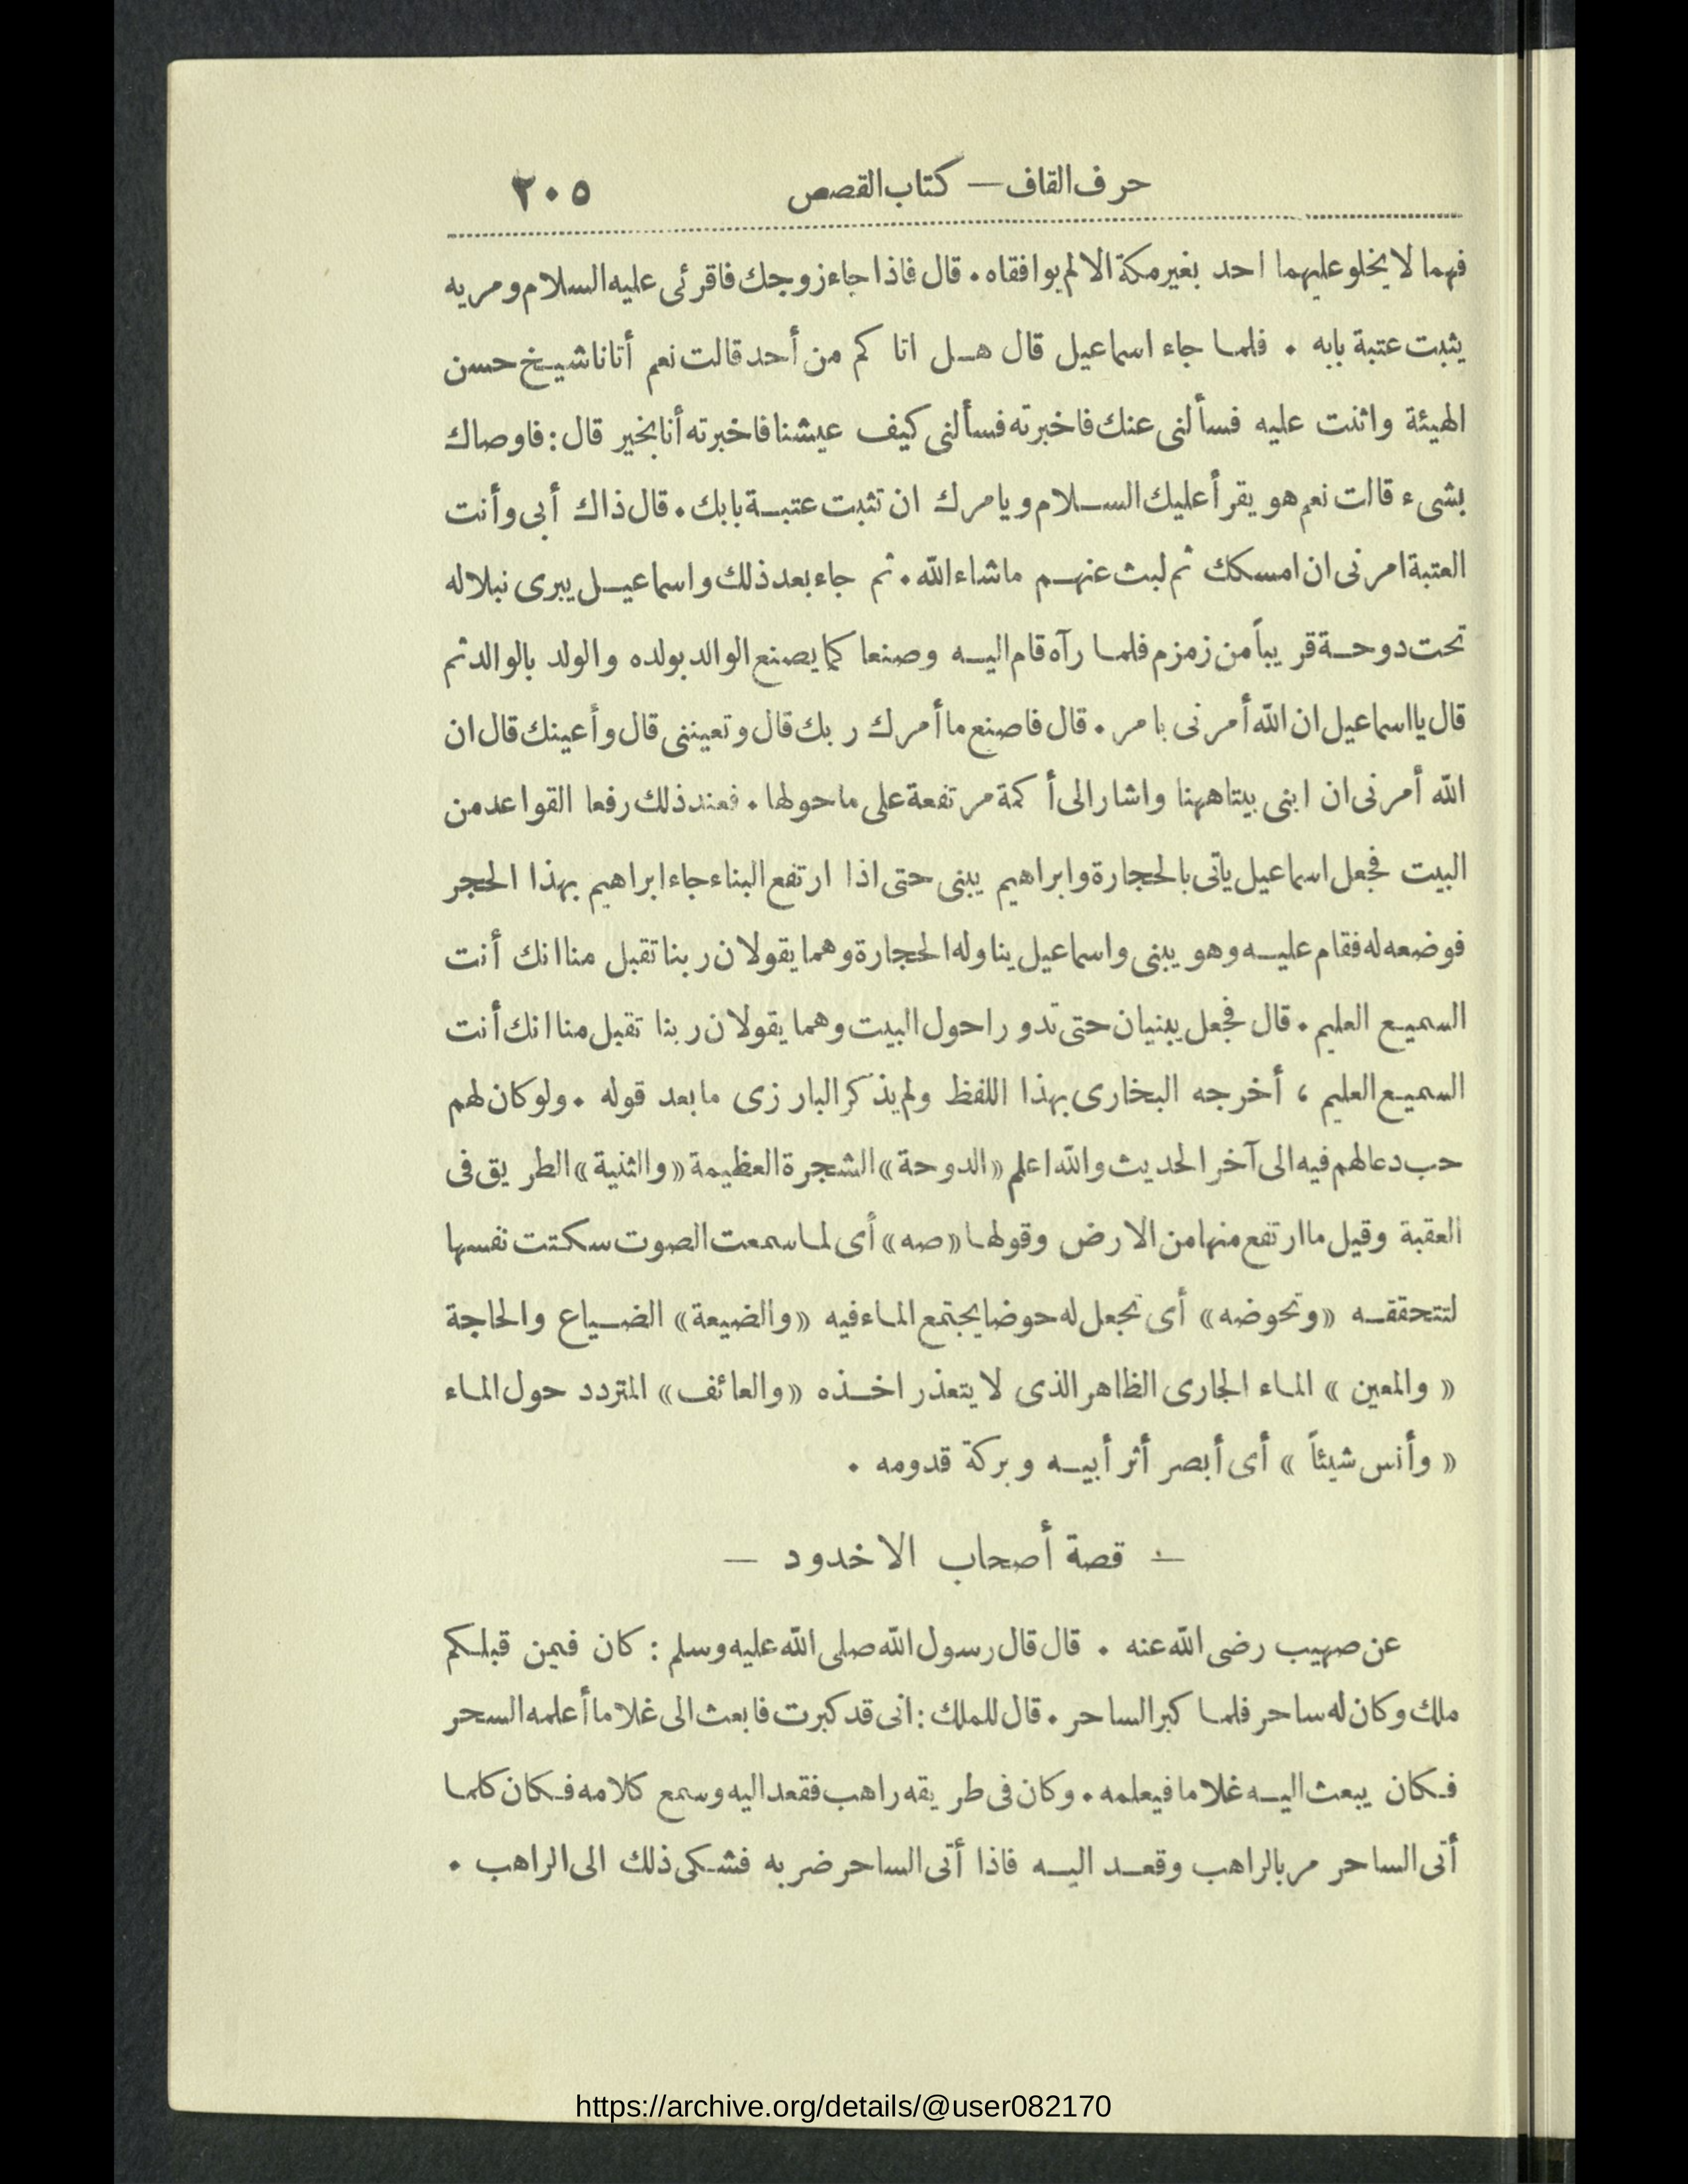 حرف القاف — كتاب القصص ٢٠٥
فهما لا يخلو عليهما احد بغير مكة الا لم يوافقاه . قال فاذا جاء زوجك فاقرئى عليه السلام ومريه
يثبت عتبة بابه . فلما جاء اسماعيل قال هل اتا كم من أحد قالت نعم أتانا شيخ حسن
الهيئة واثنت عليه فسألنى عنك فاخبرته فسألنى كيف عيشنا فاخبرته أنا بخير قال : فاوصاك
بشىء قالت نعم هو يقرأ عليك السلام ويامرك ان تثبت عتبة بابك . قال ذاك أبى وأنت
العتبة امرنى ان امسكك ثم لبث عنهم ماشاء الله . ثم جاء بعد ذلك واسماعيل يبرى نبلا له
تحت دوحة قريباً من زمزم فلما رآه قام اليه وصنعا كما يصنع الوالد بولده والولد بالوالد ثم
قال يا اسماعيل ان الله أمرنى بامر . قال فاصنع ما أمرك ربك قال وتعيننى قال وأعينك قال ان
الله أمرنى ان ابنى بيتا ههنا واشار الى أكمة مرتفعة على ماحولها . فعند ذلك رفعا القواعد من
البيت فجعل اسماعيل ياتى بالحجارة وابراهيم يبنى حتى اذا ارتفع البناء جاء ابراهيم بهذا الحجر
فوضعه له فقام عليه وهو يبنى واسماعيل يناوله الحجارة وهما يقولان ربنا تقبل منا انك أنت
السميع العليم . قال فجعل يبنيان حتى تدورا حول البيت وهما يقولان ربنا تقبل منا انك أنت
السميع العليم ، أخرجه البخارى بهذا اللفظ ولم يذكر البارزى مابعد قوله . ولو كان لهم
حب دعا لهم فيه الى آخر الحديث والله اعلم «الدوحة» الشجرة العظيمة «والثنية» الطريق فى
العقبة وقيل ما ارتفع منها من الارض وقولها «صه» أى لما سمعت الصوت سكتت نفسها
لتتحققه «وتحوضه» أى تجعل له حوضا يجتمع الماء فيه «والضيعة» الضياع والحاجة
« والمعين » الماء الجارى الظاهر الذى لا يتعذر اخذه «والعائف» المتردد حول الماء
« وأنس شيئاً » أى أبصر أثر أبيه وبركة قدومه .
— قصة أصحاب الاخدود —
عن صهيب رضى الله عنه . قال قال رسول الله صلى الله عليه وسلم : كان فيمن قبلكم
ملك وكان له ساحر فلما كبر الساحر . قال للملك : انى قد كبرت فابعث الى غلاما أعلمه السحر
فكان يبعث اليه غلاما فيعلمه . وكان فى طريقه راهب فقعد اليه وسمع كلامه فكان كلما
أتى الساحر مر بالراهب وقعد اليه فاذا أتى الساحر ضربه فشكى ذلك الى الراهب .
https://archive.org/details/@user082170